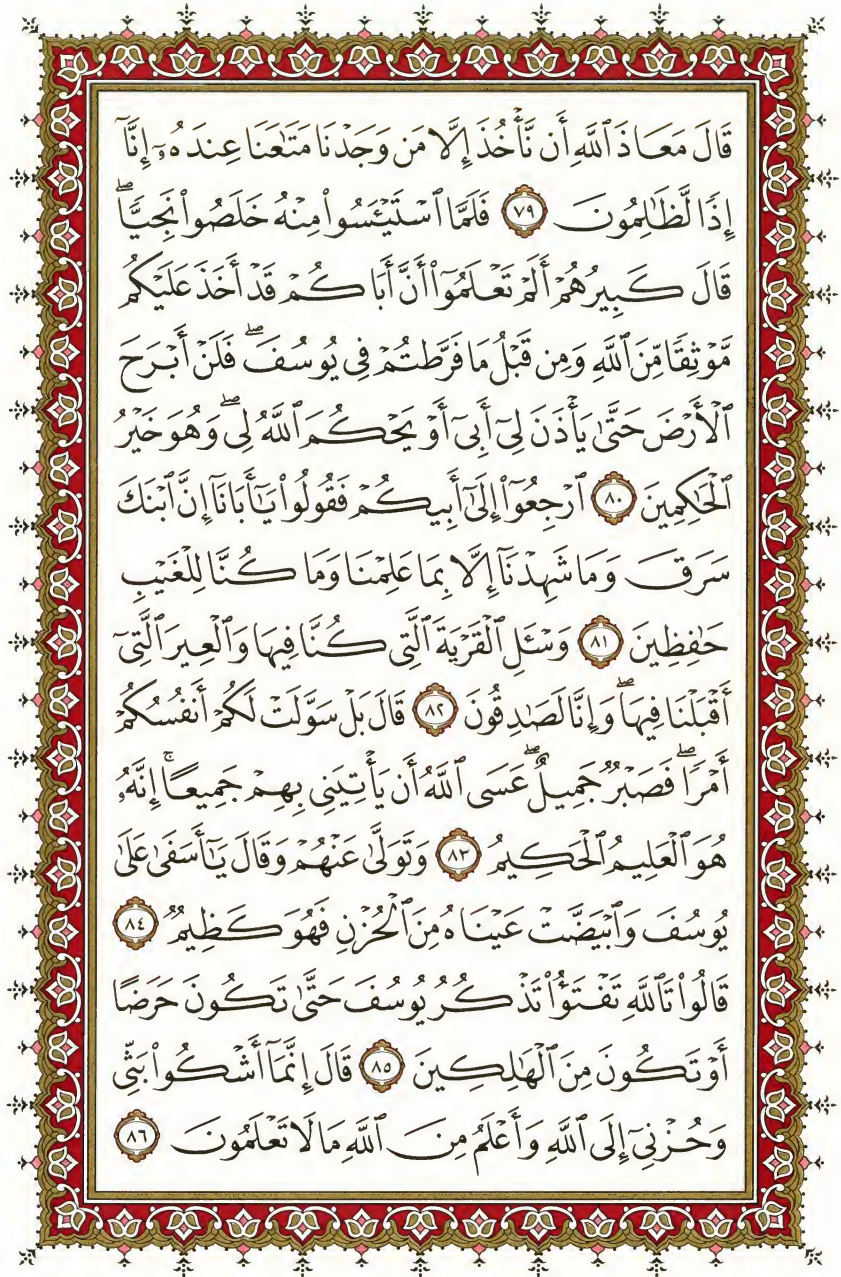 قَالَ مَعَاذَ ٱللَّهِ أَن نَّأْخُذَ إِلَّا مَن وَجَدْنَا مَتَٰعَنَا عِندَهُۥٓ إِنَّآ
إِذًا لَّظَٰلِمُونَ ٧٩ فَلَمَّا ٱسْتَيْـَٔسُوا۟ مِنْهُ خَلَصُوا۟ نَجِيًّاۖ
قَالَ كَبِيرُهُمْ أَلَمْ تَعْلَمُوٓا۟ أَنَّ أَبَاكُمْ قَدْ أَخَذَ عَلَيْكُم
مَّوْثِقًا مِّنَ ٱللَّهِ وَمِن قَبْلُ مَا فَرَّطتُمْ فِى يُوسُفَۖ فَلَنْ أَبْرَحَ
ٱلْأَرْضَ حَتَّىٰ يَأْذَنَ لِىٓ أَبِىٓ أَوْ يَحْكُمَ ٱللَّهُ لِىۖ وَهُوَ خَيْرُ
ٱلْحَٰكِمِينَ ٨٠ ٱرْجِعُوٓا۟ إِلَىٰٓ أَبِيكُمْ فَقُولُوا۟ يَٰٓأَبَانَآ إِنَّ ٱبْنَكَ
سَرَقَ وَمَا شَهِدْنَآ إِلَّا بِمَا عَلِمْنَا وَمَا كُنَّا لِلْغَيْبِ
حَٰفِظِينَ ٨١ وَسْـَٔلِ ٱلْقَرْيَةَ ٱلَّتِى كُنَّا فِيهَا وَٱلْعِيرَ ٱلَّتِىٓ
أَقْبَلْنَا فِيهَاۖ وَإِنَّا لَصَٰدِقُونَ ٨٢ قَالَ بَلْ سَوَّلَتْ لَكُمْ أَنفُسُكُمْ
أَمْرًاۖ فَصَبْرٌ جَمِيلٌۖ عَسَى ٱللَّهُ أَن يَأْتِيَنِى بِهِمْ جَمِيعًاۚ إِنَّهُۥ
هُوَ ٱلْعَلِيمُ ٱلْحَكِيمُ ٨٣ وَتَوَلَّىٰ عَنْهُمْ وَقَالَ يَٰٓأَسَفَىٰ عَلَىٰ
يُوسُفَ وَٱبْيَضَّتْ عَيْنَاهُ مِنَ ٱلْحُزْنِ فَهُوَ كَظِيمٌ ٨٤
قَالُوا۟ تَٱللَّهِ تَفْتَؤُا۟ تَذْكُرُ يُوسُفَ حَتَّىٰ تَكُونَ حَرَضًا
أَوْ تَكُونَ مِنَ ٱلْهَٰلِكِينَ ٨٥ قَالَ إِنَّمَآ أَشْكُوا۟ بَثِّى
وَحُزْنِىٓ إِلَى ٱللَّهِ وَأَعْلَمُ مِنَ ٱللَّهِ مَا لَا تَعْلَمُونَ ٨٦